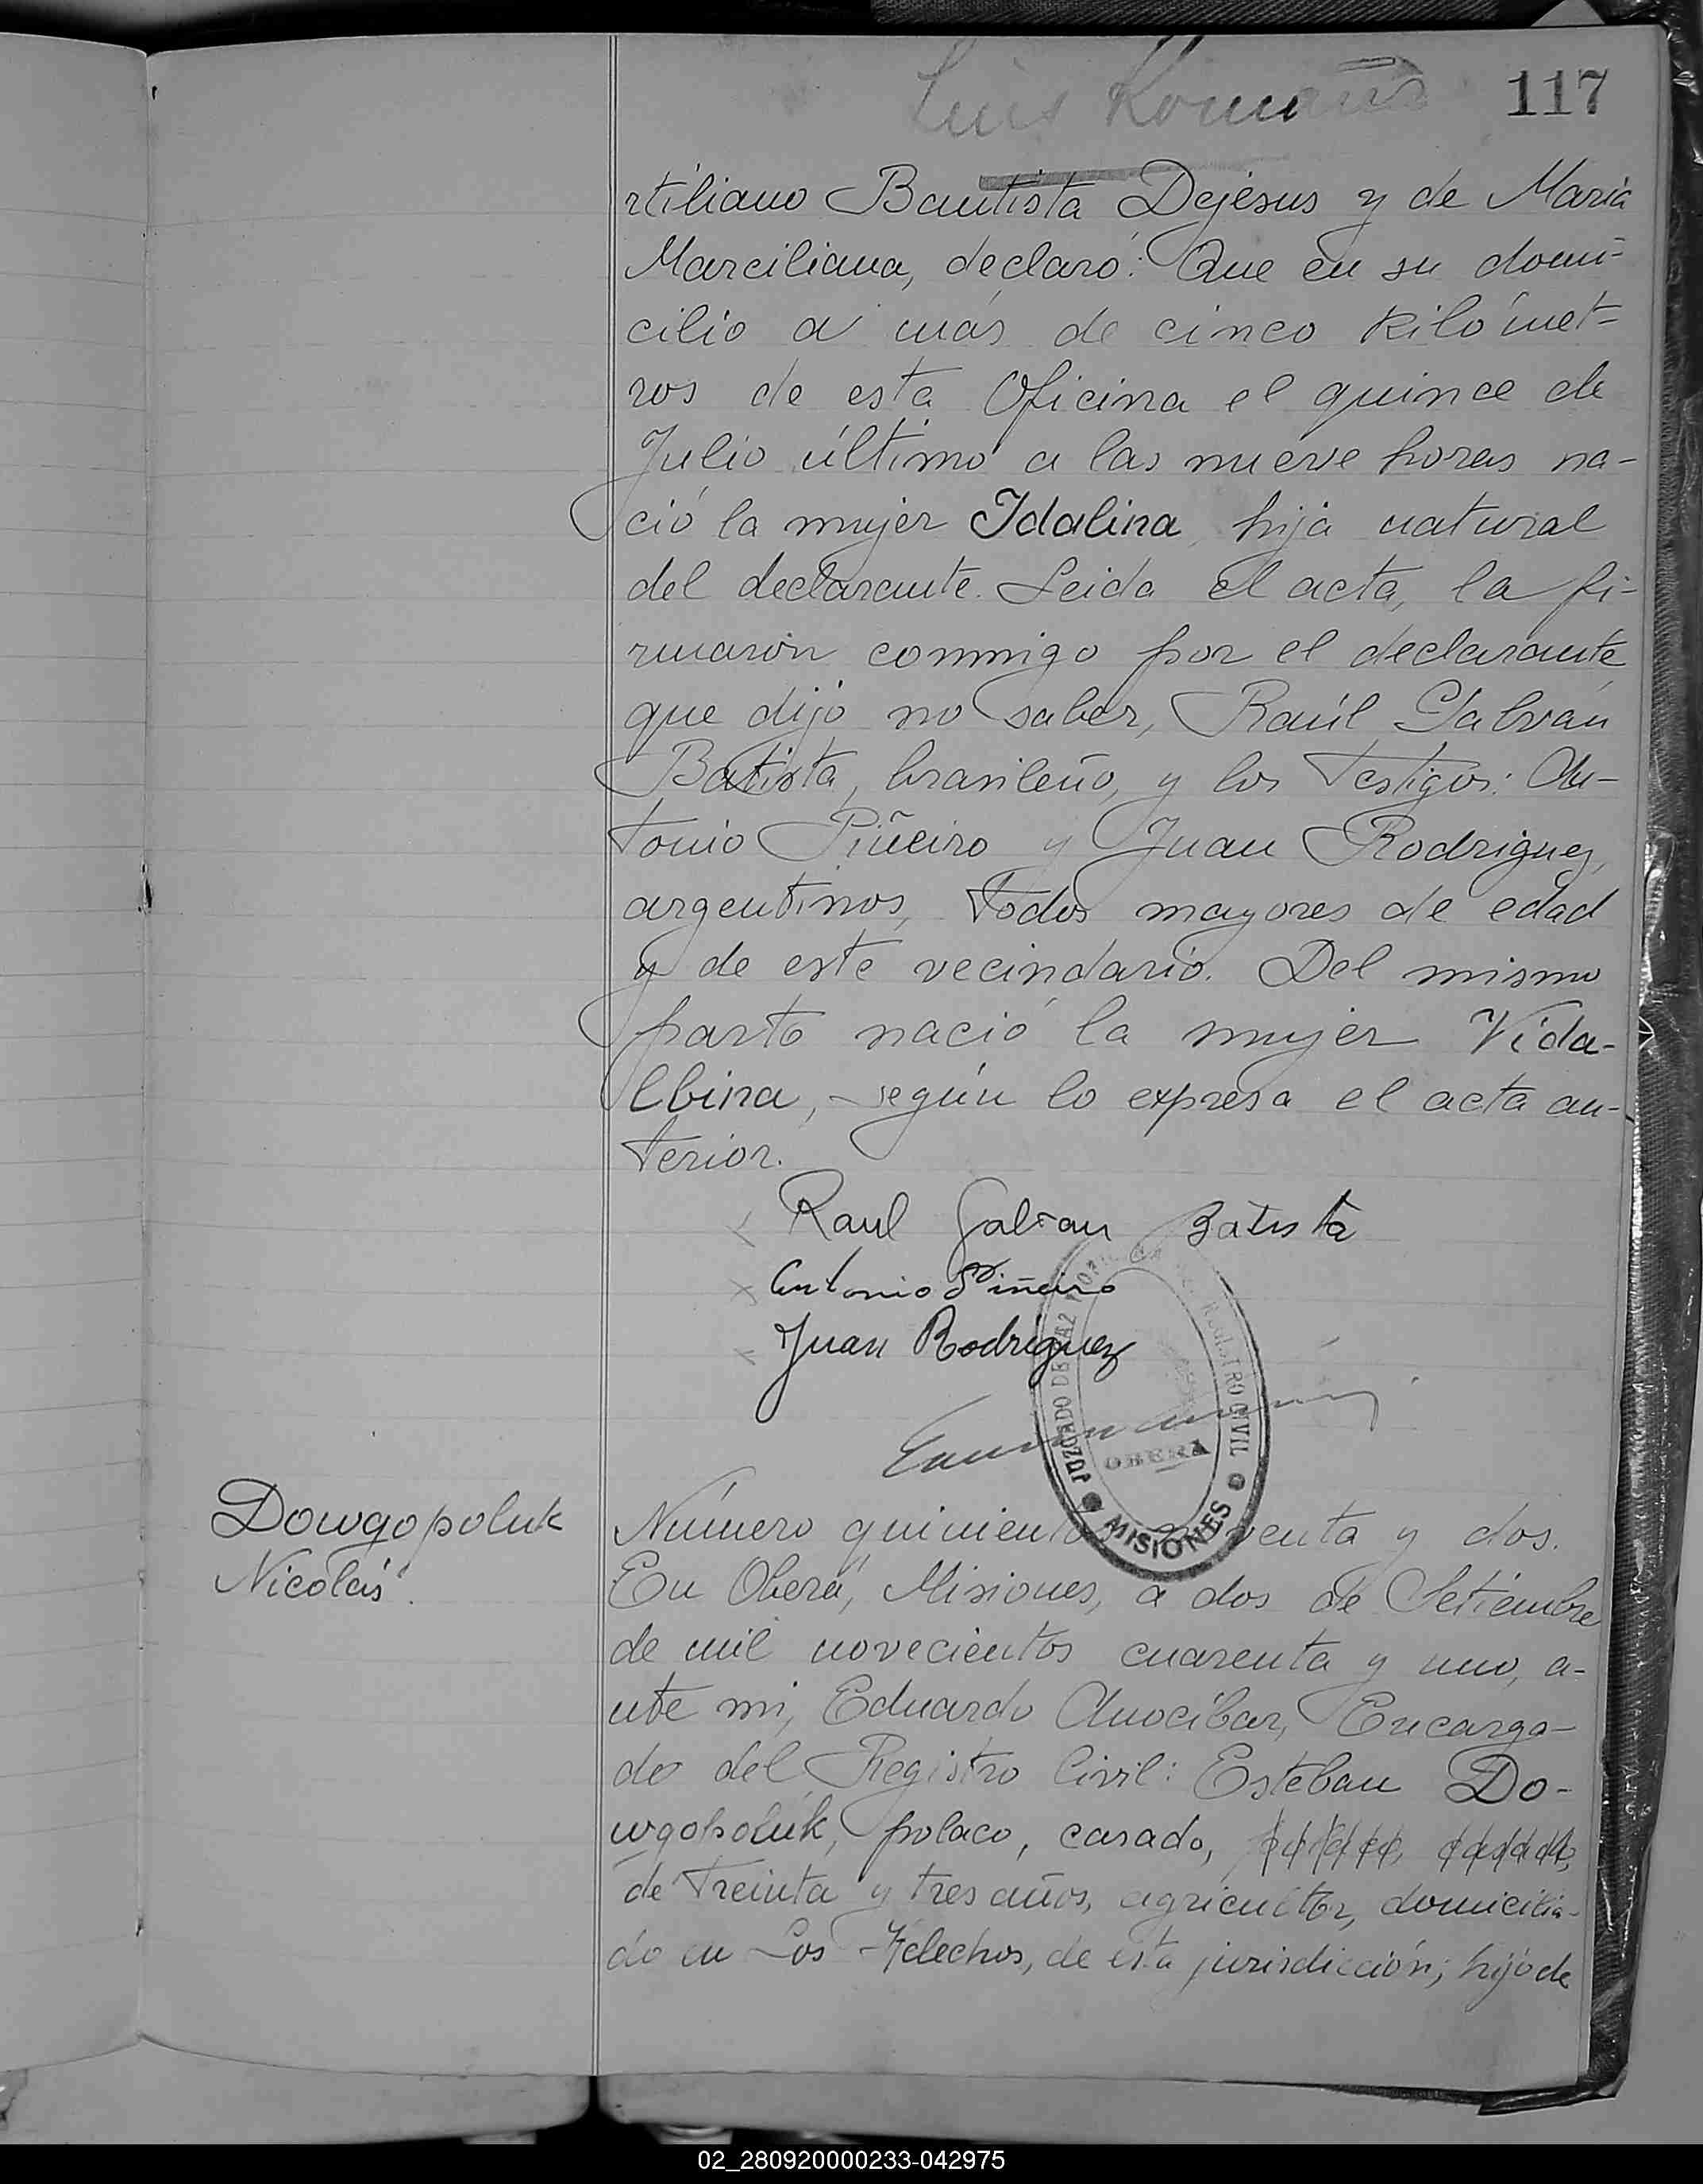 Luis Romano
117
rtiliano Bautista Dejesus y de Maria
Marciliana, declaró: Que en su domi-
cilio a más de cinco kilómet-
ros de esta Oficina el quince de
Julio último a las nueve horas na-
ció la mujer Idalina, hija natural
del declarante. Leida el acta, la fi-
rmaron conmigo por el declarante
que dijo no saber, Raúl Galván
Batista, brasileño, y los testigos: An-
tonio Piñeiro y Juan Rodriguez,
argentinos, todos mayores de edad
y de este vecindario. Del mismo
parto nació la mujer Vida-
lbina, según lo expresa el acta an-
terior.
Raul Galvan Batista
Antonio Piñeiro
Juan Rodriguez
JUZGADO DE PAZ REGISTRO CIVIL
OBERA
MISIONES
Dowgopoluk
Nicolás.
Número quinientos noventa y dos.
En Oberá, Misiones, a dos de Setiembre
de mil novecientos cuarenta y uno, a-
nte mi, Eduardo Anocibar, Encarga-
do del Registro Civil: Esteban Do-
wgopoluk, polaco, casado,
de treinta y tres años, agricultor, domicilia-
do en Los Helechos, de esta jurisdicción; hijo de
02_280920000233-042975